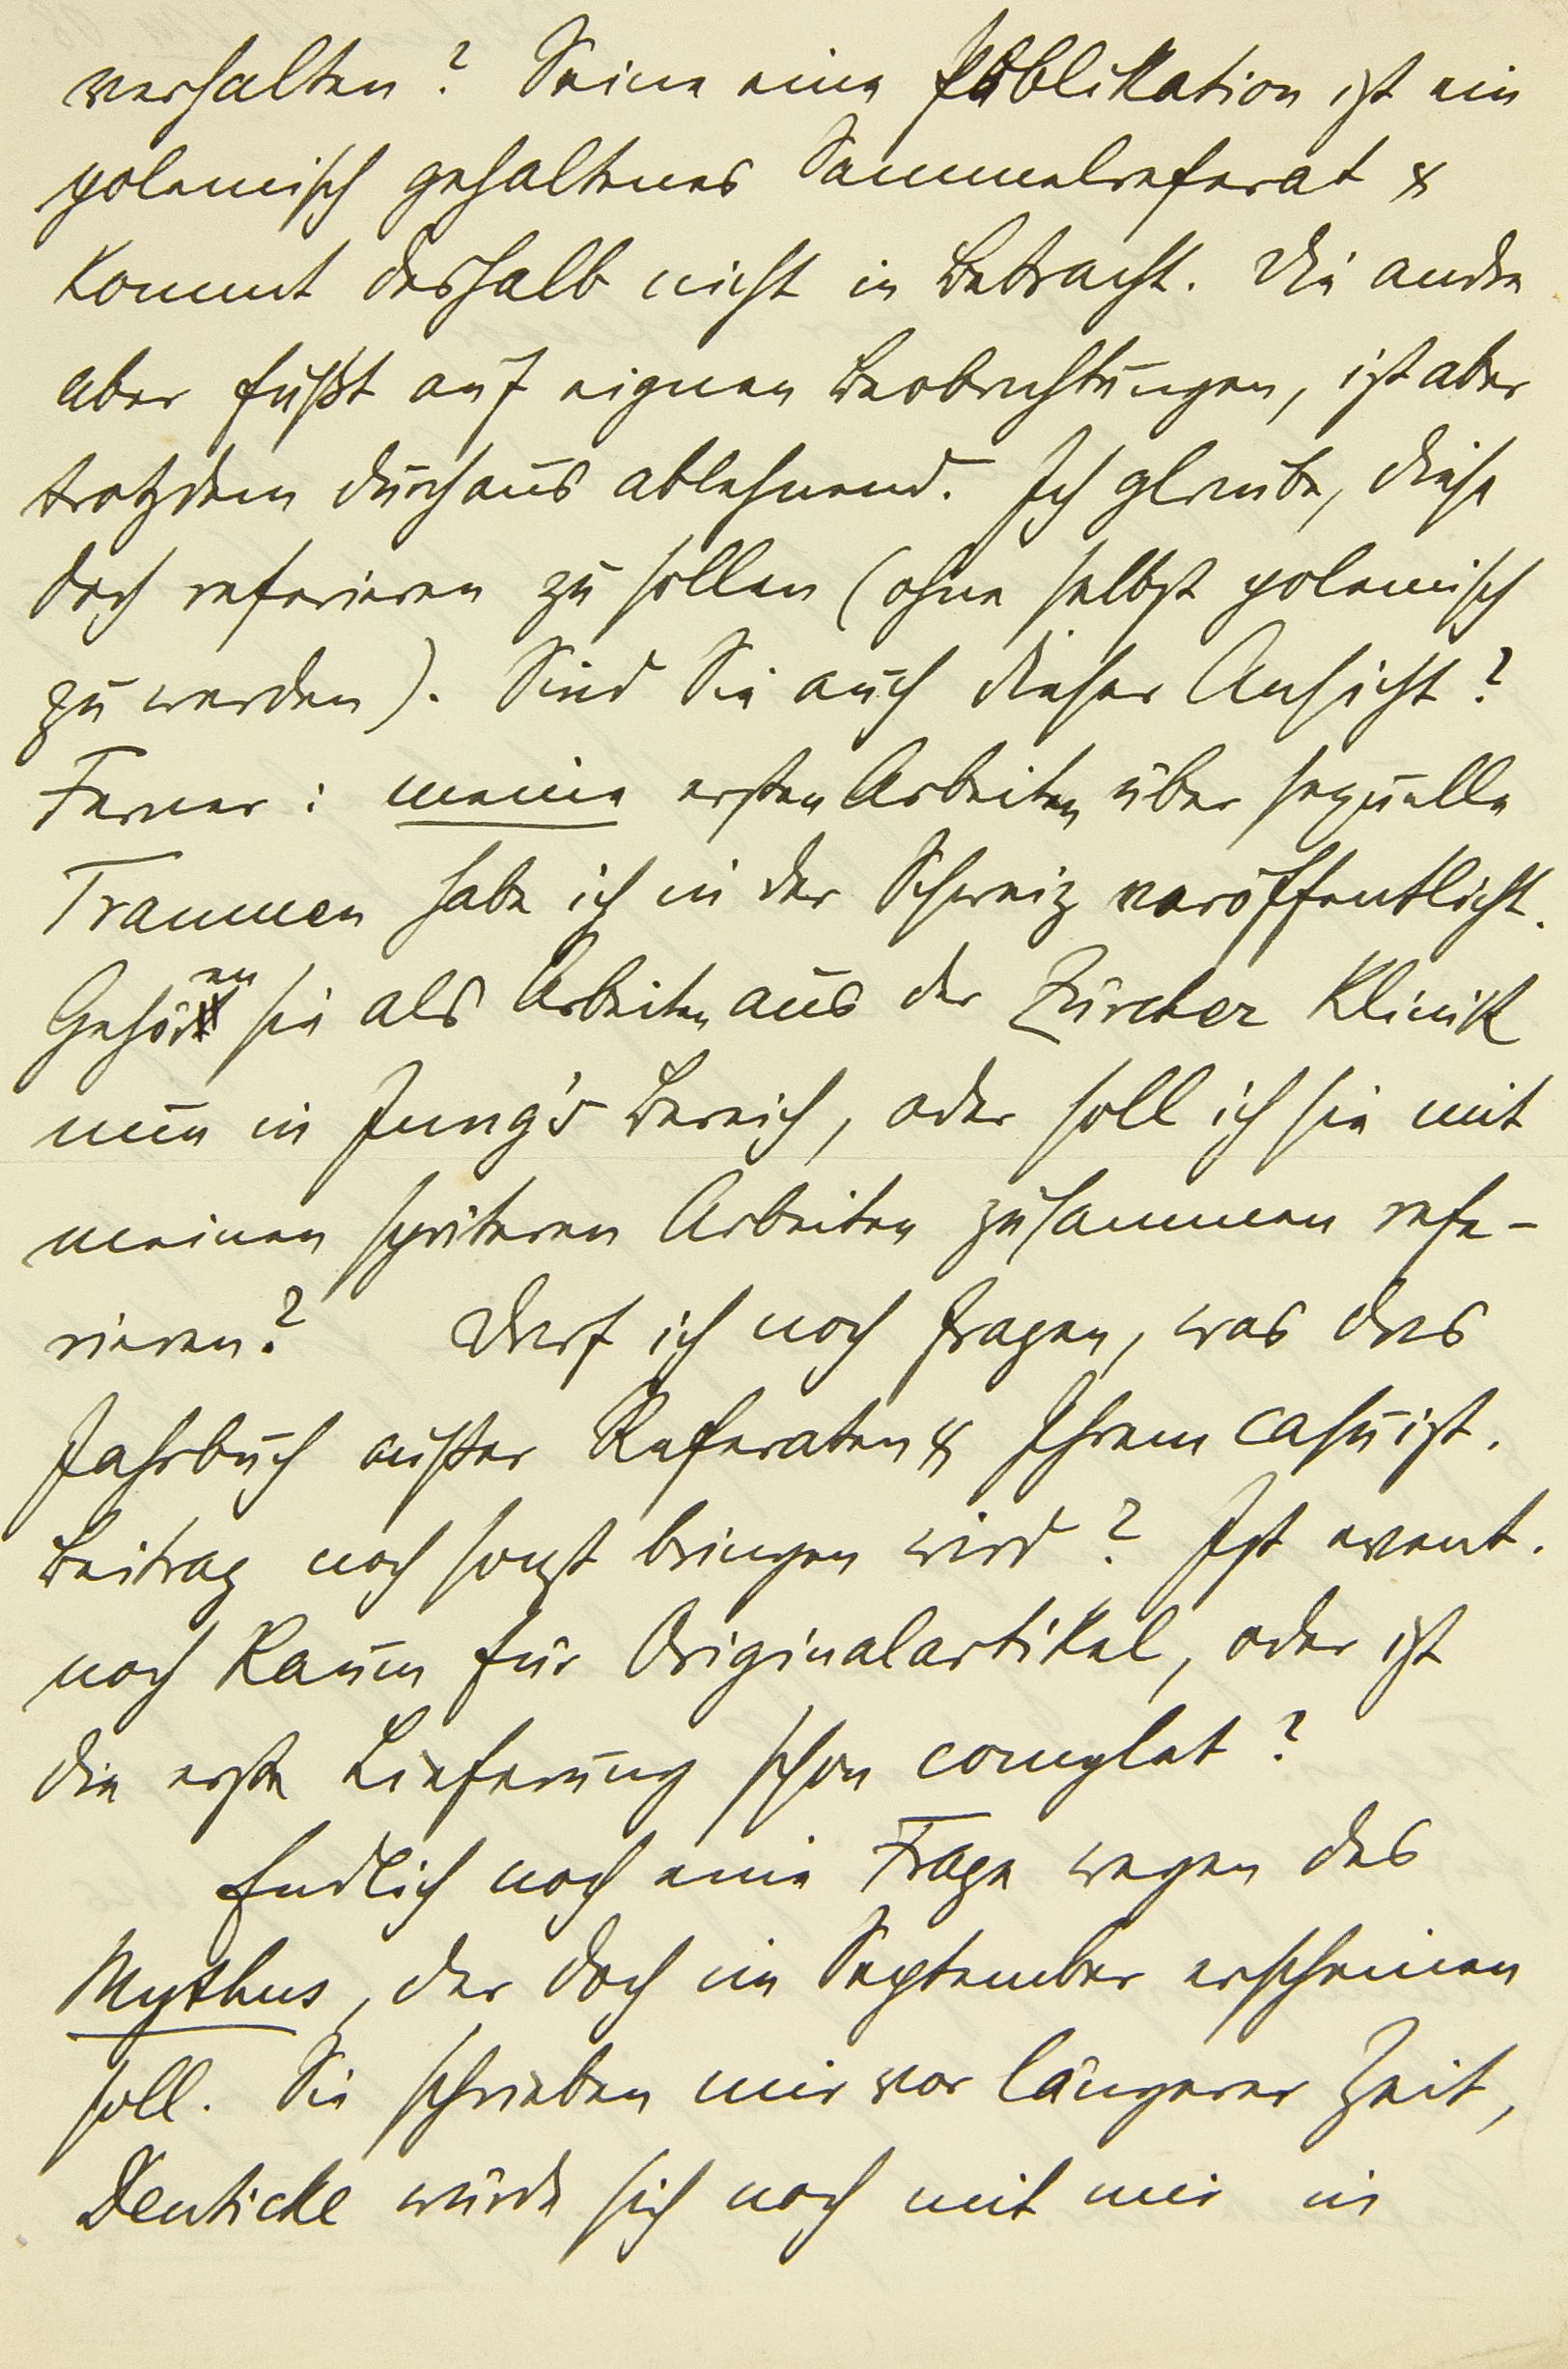 verhalten? Seine eine Publikation ist ein
polemisch gehaltenes Sammelreferat &
kommt deshalb nicht in Betracht. Die andre
aber fußt auf eignen Beobachtungen, ist aber
trotzdem durchaus ablehnend. Ich glaube, diese
doch referieren zu sollen (ohne selbst polemisch
zu werden). Sind Sie auch dieser Ansicht?
Ferner: meine ersten Arbeiten über sexuelle
Traumen habe ich in der Schweiz veröffentlicht.
Gehören sie als Arbeiten aus der Zürcher Klinik
nun in Jung's Bereich, oder soll ich sie mit
meinen späteren Arbeiten zusammen refe-
rieren? Darf ich noch fragen, was das
Jahrbuch außer Referaten & Ihrem casuist.
Beitrag noch sonst bringen wird? Ist event.
noch Raum für Originalartikel, oder ist
die erste Lieferung schon complet?
Endlich noch eine Frage wegen des
Mythus, der doch im September erscheinen
soll. Sie schrieben mir vor längerer Zeit,
Deuticke würde sich noch mit mir in